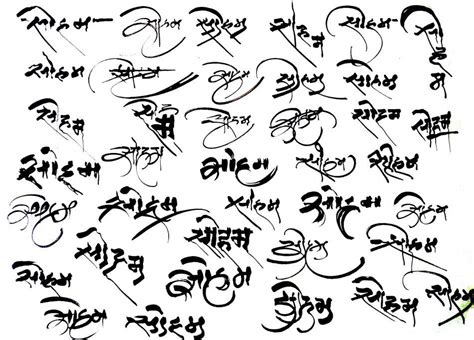 सोहम सोहम सोहम सोहम सोहम सोहम
सोहम सोहम सोहम सोहम सोहम
सोहम सोहम सोहम सोहम सोहम सोहम
सोहम सोहम सोहम सोहम सोहम
सोहम सोहम सोहम सोहम सोहम
सोहम सोहम सोहम सोहम
सोहम सोहम सोहम सोहम सोहम
सोहम